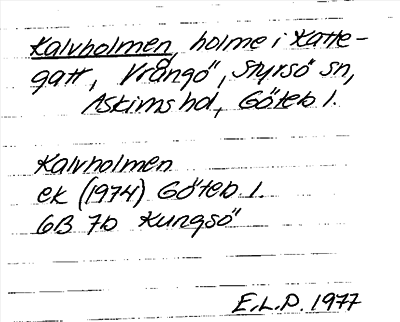 Kalvholmen, holme i Katte-
gatt, Vrångö, Styrsö sn,
Askims hd, Göteb l.
Kalvholmen
ek (1974) Göteb l.
6B 7b Kungsö
E.L.P. 1977